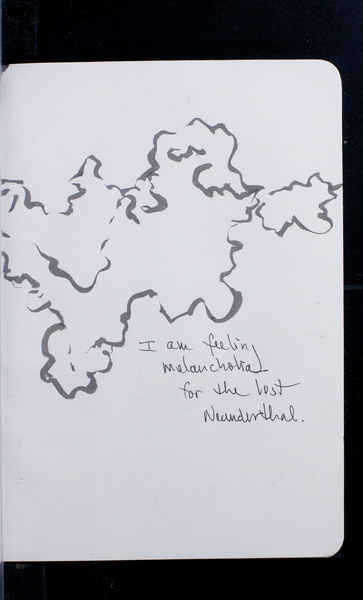 I am feeling
melancholia
for the lost
Neanderthal.